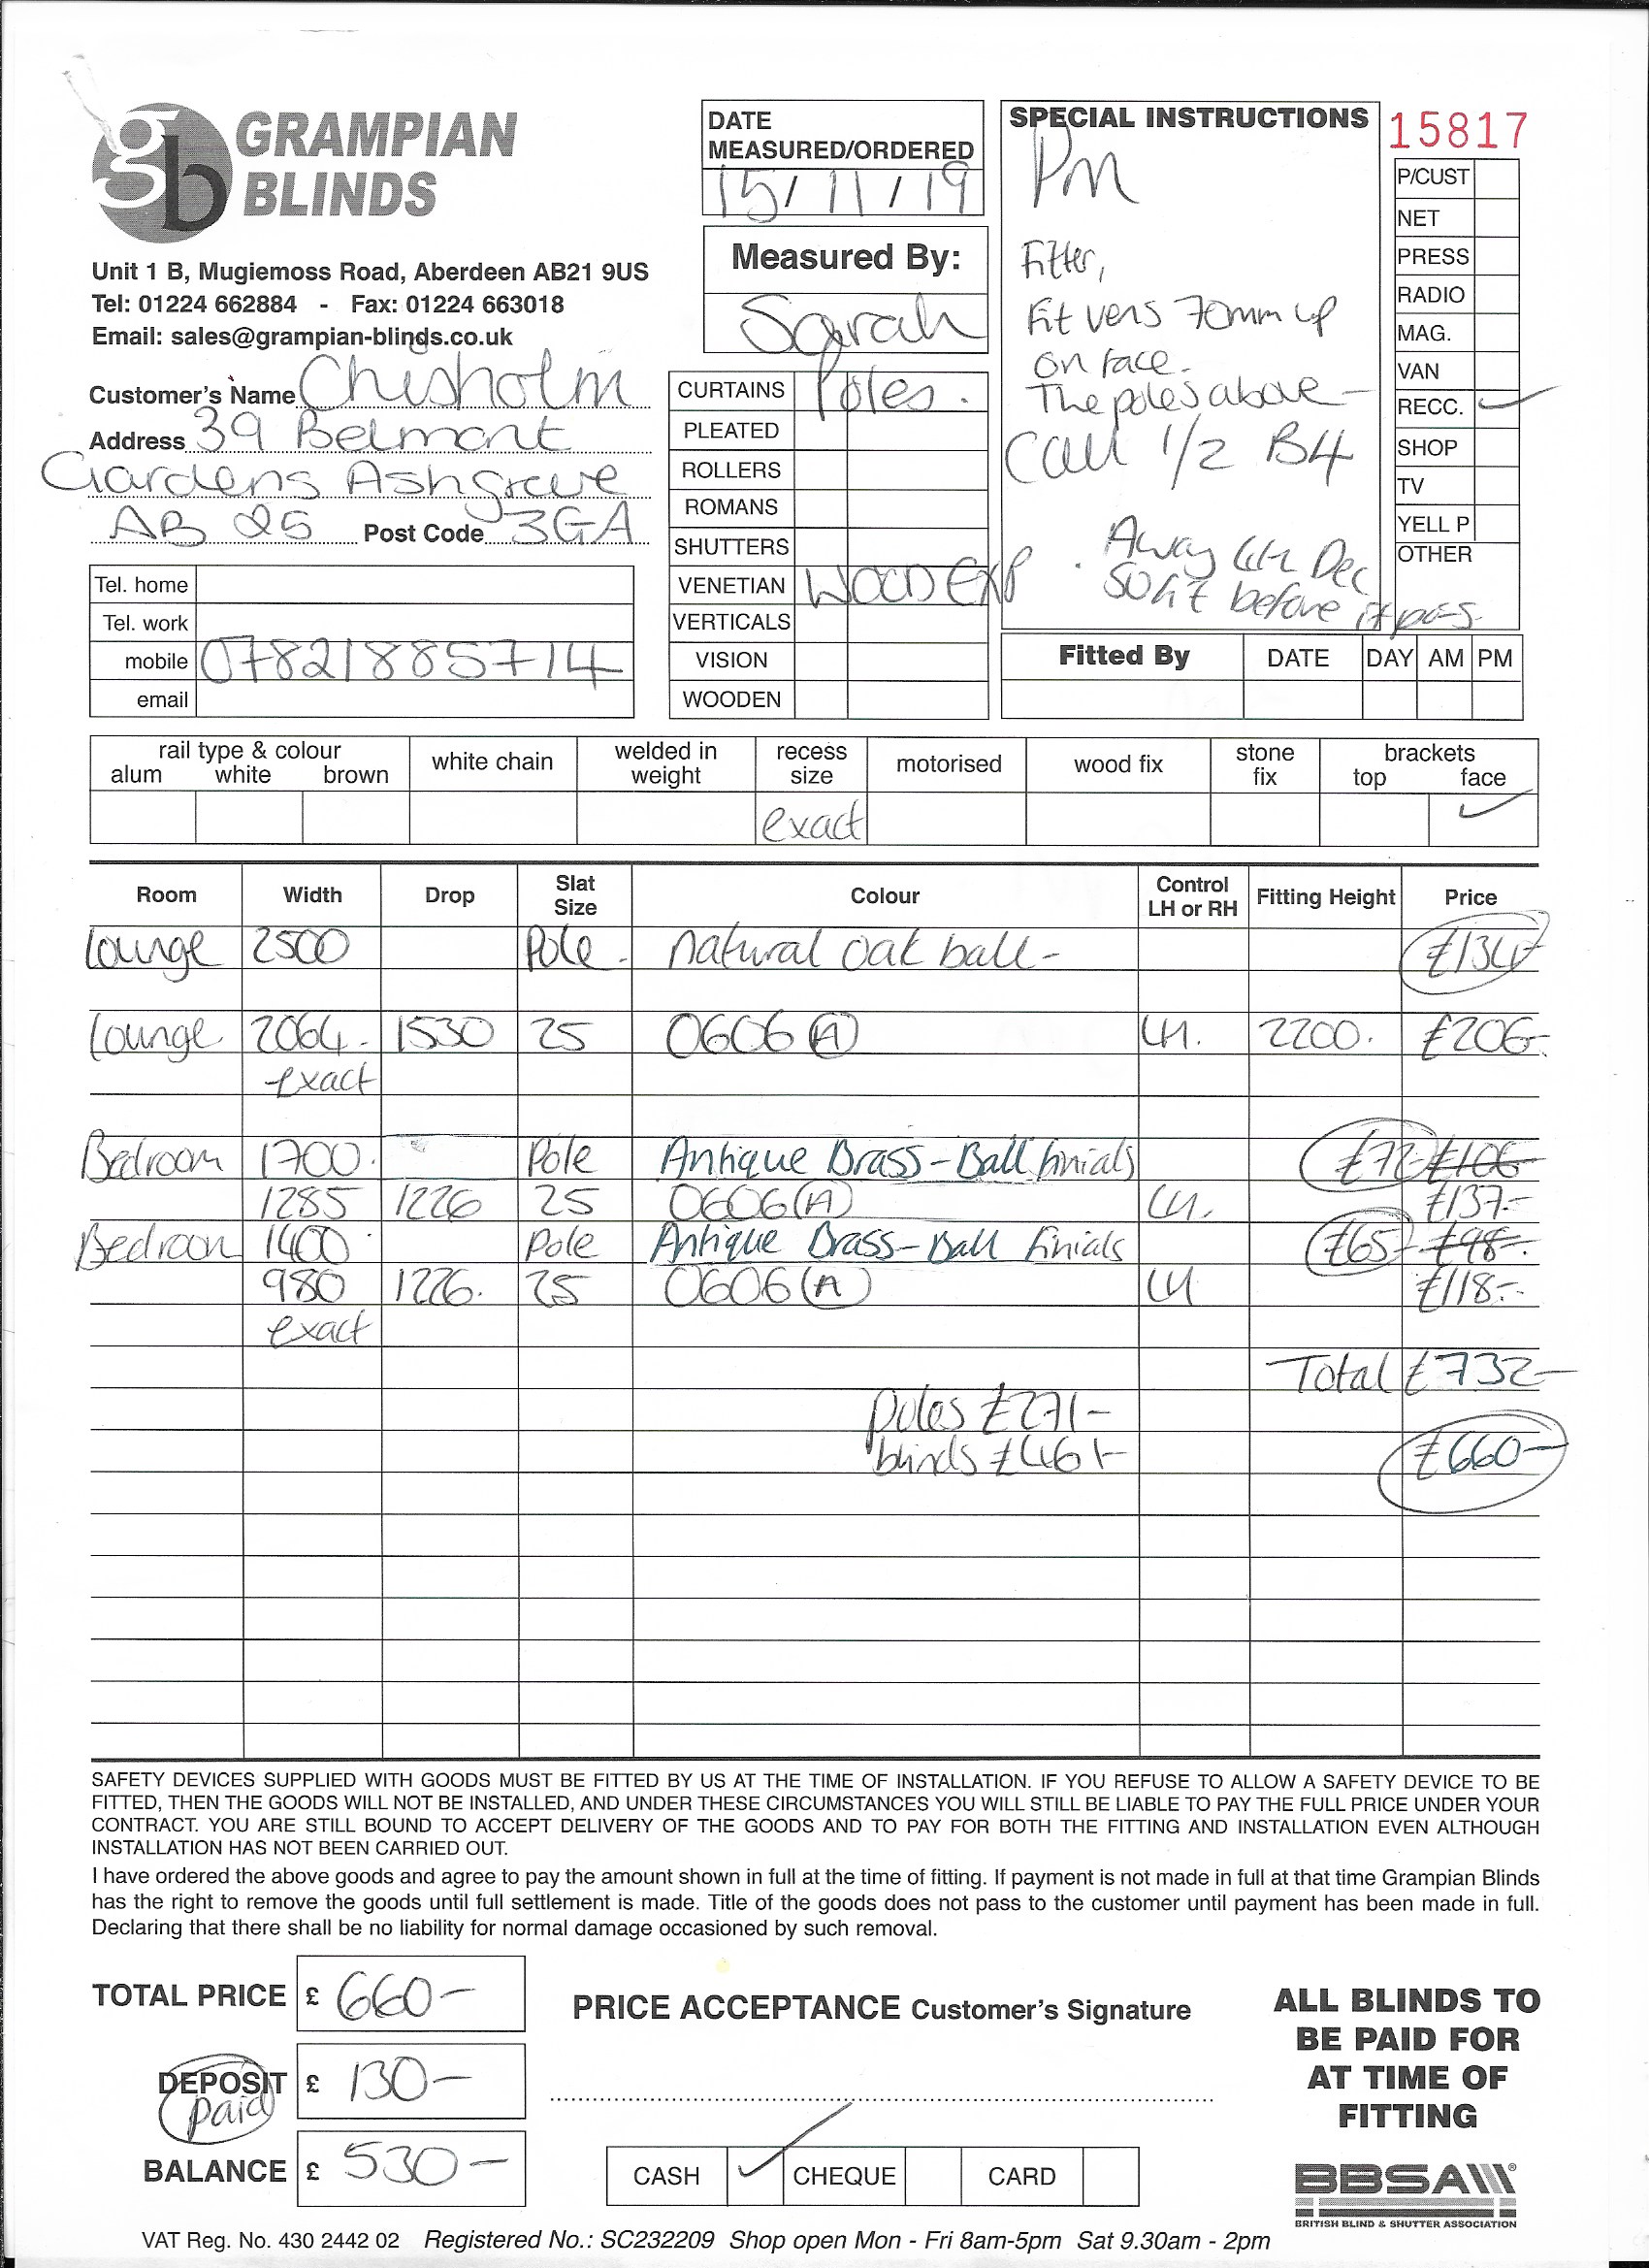 gb GRAMPIAN
BLINDS
Unit 1 B, Mugiemoss Road, Aberdeen AB21 9US
Tel: 01224 662884 - Fax: 01224 663018
Email: sales@grampian-blinds.co.uk
Customer's Name Chisholm
Address 39 Belmont
Gardens Ashgrove
AB 25 Post Code 3GA
Tel. home
Tel. work
mobile 07821885714
email
DATE
MEASURED/ORDERED
15/11/19
Measured By:
Sarah
CURTAINS Poles.
PLEATED
ROLLERS
ROMANS
SHUTTERS
VENETIAN WOOD EXP
VERTICALS
VISION
WOODEN
SPECIAL INSTRUCTIONS
Pm
Fitter,
Fit vens 70mm up
on face.
The poles above -
Call 1/2 B4
Away 4th Dec
so fit before if poss
15817
P/CUST
NET
PRESS
RADIO
MAG.
VAN
RECC. ✓
SHOP
TV
YELL P
OTHER
Fitted By DATE DAY AM PM
rail type & colour white chain welded in weight recess size motorised wood fix stone fix brackets
alum white brown top face
exact ✓
Room Width Drop Slat Size Colour Control LH or RH Fitting Height Price
Lounge 2500 Pole. natural oak ball- £134-
Lounge 2064. 1530 25 0606 (A) LH. 2200. £206-
exact
Bedroom 1700. Pole Antique Brass-Ball finials £72- £106-
1285 1226 25 0606 (A) LH. £137-
Bedroom 1400 Pole Antique Brass-Ball finials £65- £98-
980 1226. 25 0606 (A) LH £118-
exact
Total £732-
poles £271-
blinds £461-
£660-
SAFETY DEVICES SUPPLIED WITH GOODS MUST BE FITTED BY US AT THE TIME OF INSTALLATION. IF YOU REFUSE TO ALLOW A SAFETY DEVICE TO BE
FITTED, THEN THE GOODS WILL NOT BE INSTALLED, AND UNDER THESE CIRCUMSTANCES YOU WILL STILL BE LIABLE TO PAY THE FULL PRICE UNDER YOUR
CONTRACT. YOU ARE STILL BOUND TO ACCEPT DELIVERY OF THE GOODS AND TO PAY FOR BOTH THE FITTING AND INSTALLATION EVEN ALTHOUGH
INSTALLATION HAS NOT BEEN CARRIED OUT.
I have ordered the above goods and agree to pay the amount shown in full at the time of fitting. If payment is not made in full at that time Grampian Blinds
has the right to remove the goods until full settlement is made. Title of the goods does not pass to the customer until payment has been made in full.
Declaring that there shall be no liability for normal damage occasioned by such removal.
TOTAL PRICE £ 660-
DEPOSIT £ 130-
paid
BALANCE £ 530-
PRICE ACCEPTANCE Customer's Signature
CASH ✓ CHEQUE CARD
ALL BLINDS TO
BE PAID FOR
AT TIME OF
FITTING
BBSA
BRITISH BLIND & SHUTTER ASSOCIATION
VAT Reg. No. 430 2442 02 Registered No.: SC232209 Shop open Mon - Fri 8am-5pm Sat 9.30am - 2pm